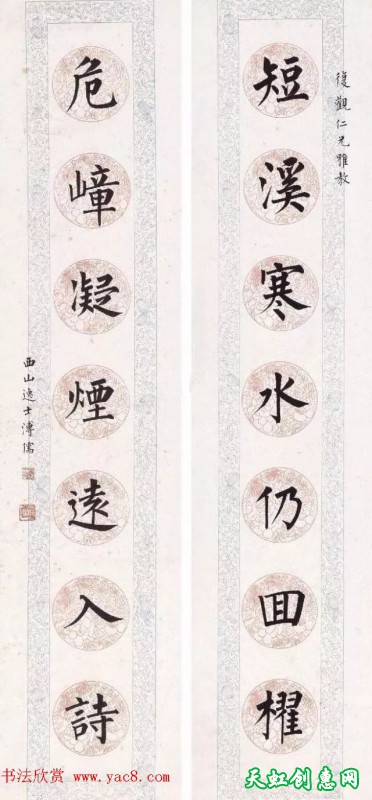 復觀仁兄雅教
短溪寒水仍回櫂
危嶂凝煙遠入詩
西山逸士溥儒
书法欣赏 www.yac8.com
天虹创意网